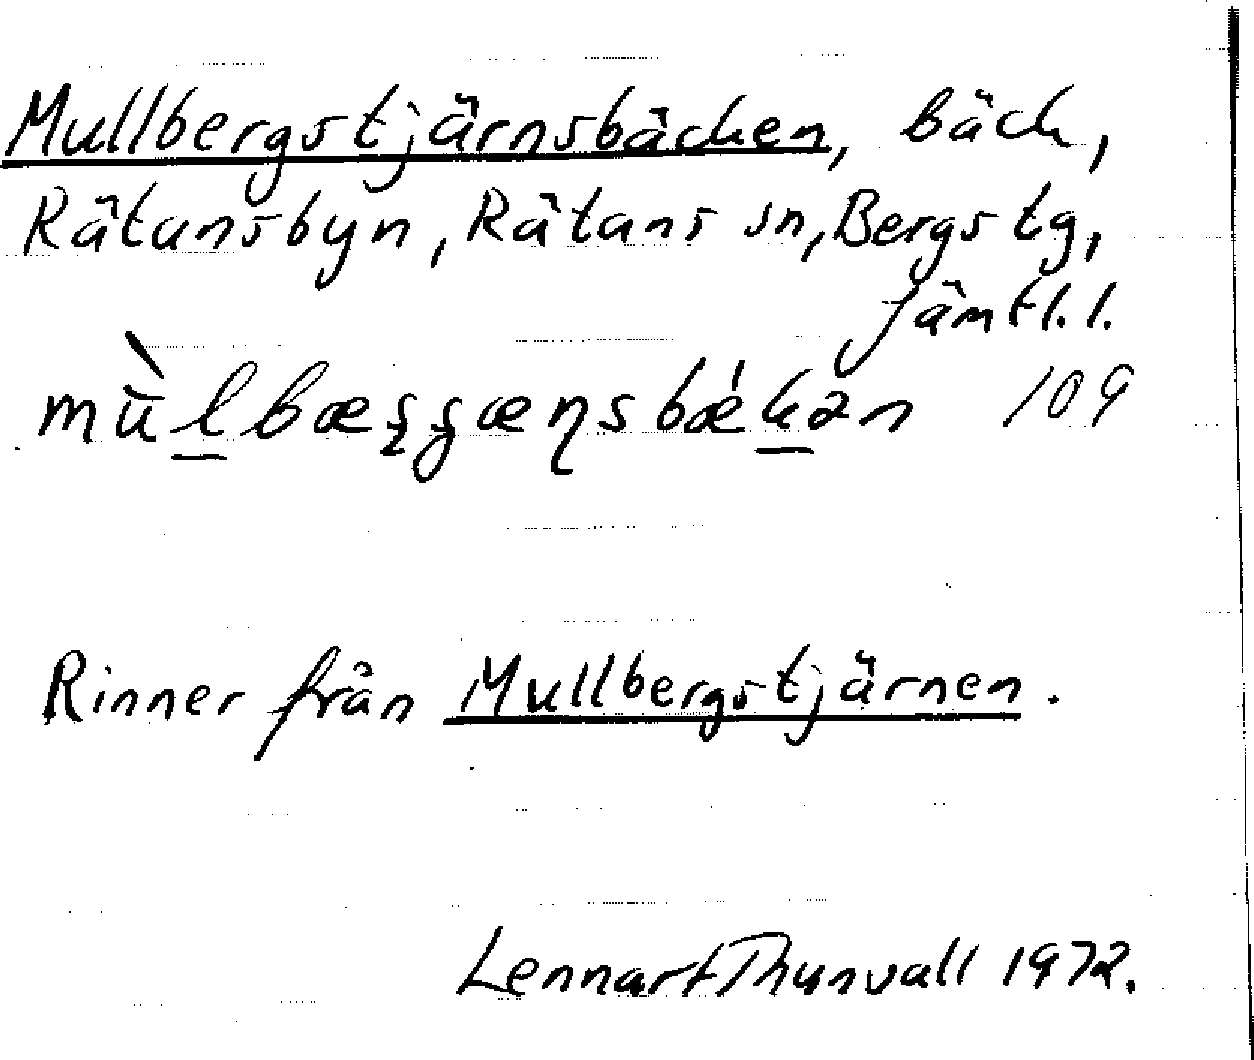 Mullbergstjärnsbäcken, bäck,
Rätansbyn, Rätans sn, Bergs tg,
Jämtl. l.
109
Rinner från Mullbergstjärnen.
Lennart Thunvall 1972.